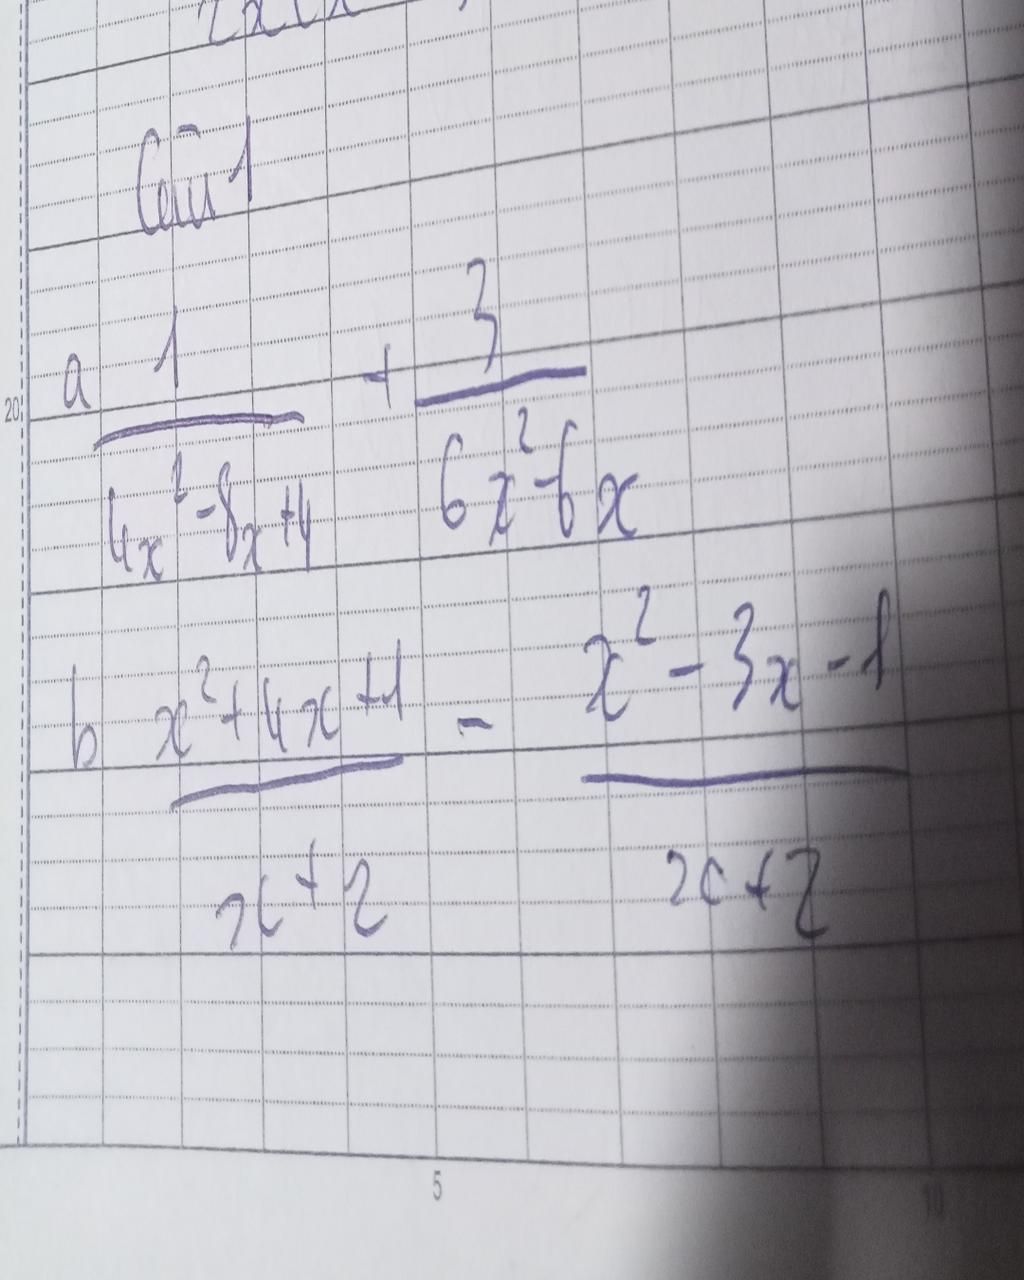 Câu 1
a 1/(4x²-8x+4) + 3/(6x²-6x)
b (x²+4x+1)/(x+2) - (x²-3x-1)/(x+2)
20
5
10